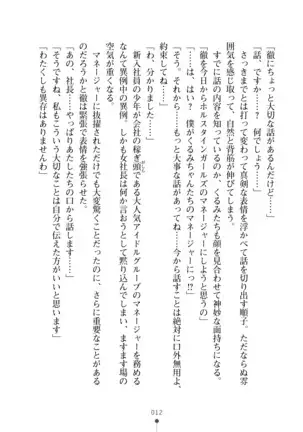 「徹にちょっと大切な話があるんだけど……」
「話、ですか……？　何でしょう……」
さっきまでとは打って変わって真剣な表情を浮かべて話を切り出す順子。ただならぬ雰
囲気を感じ取って、自然と背筋が伸びてしまう。
すでに話の内容を知っているのか、くるみたちも顔を見合わせて神妙な面持ちになる。
「徹を今日からホルスタインガールズのマネージャーにしようと思うの」
「……は、はい？　僕がくるみちゃんたちのマネージャーにっ!?」
「そう。それから……もっと大事な話があって……今から話すことは絶対に口外無用よ。
約束してね」
「わ、分かりました……」
新入社員の少年が会社の稼ぎ頭である大人気アイドルグループのマネージャーを務める
なんて異例中の異例。しかも女社長は何か言おうとして黙り込んでしまい、ますます場の
空気が重くなる。
マネージャーに抜擢されただけでも大変驚くことだというのに、さらに重大なことがあ
るのだろうかと徹は緊張で表情を強張らせる。
「あの、社長……やっぱりあたしたちの口から話します」
「そうですね、私もこういう大切なことは自分で伝えた方がいいと思います」
「わたくしも異存はありませんわ」
012